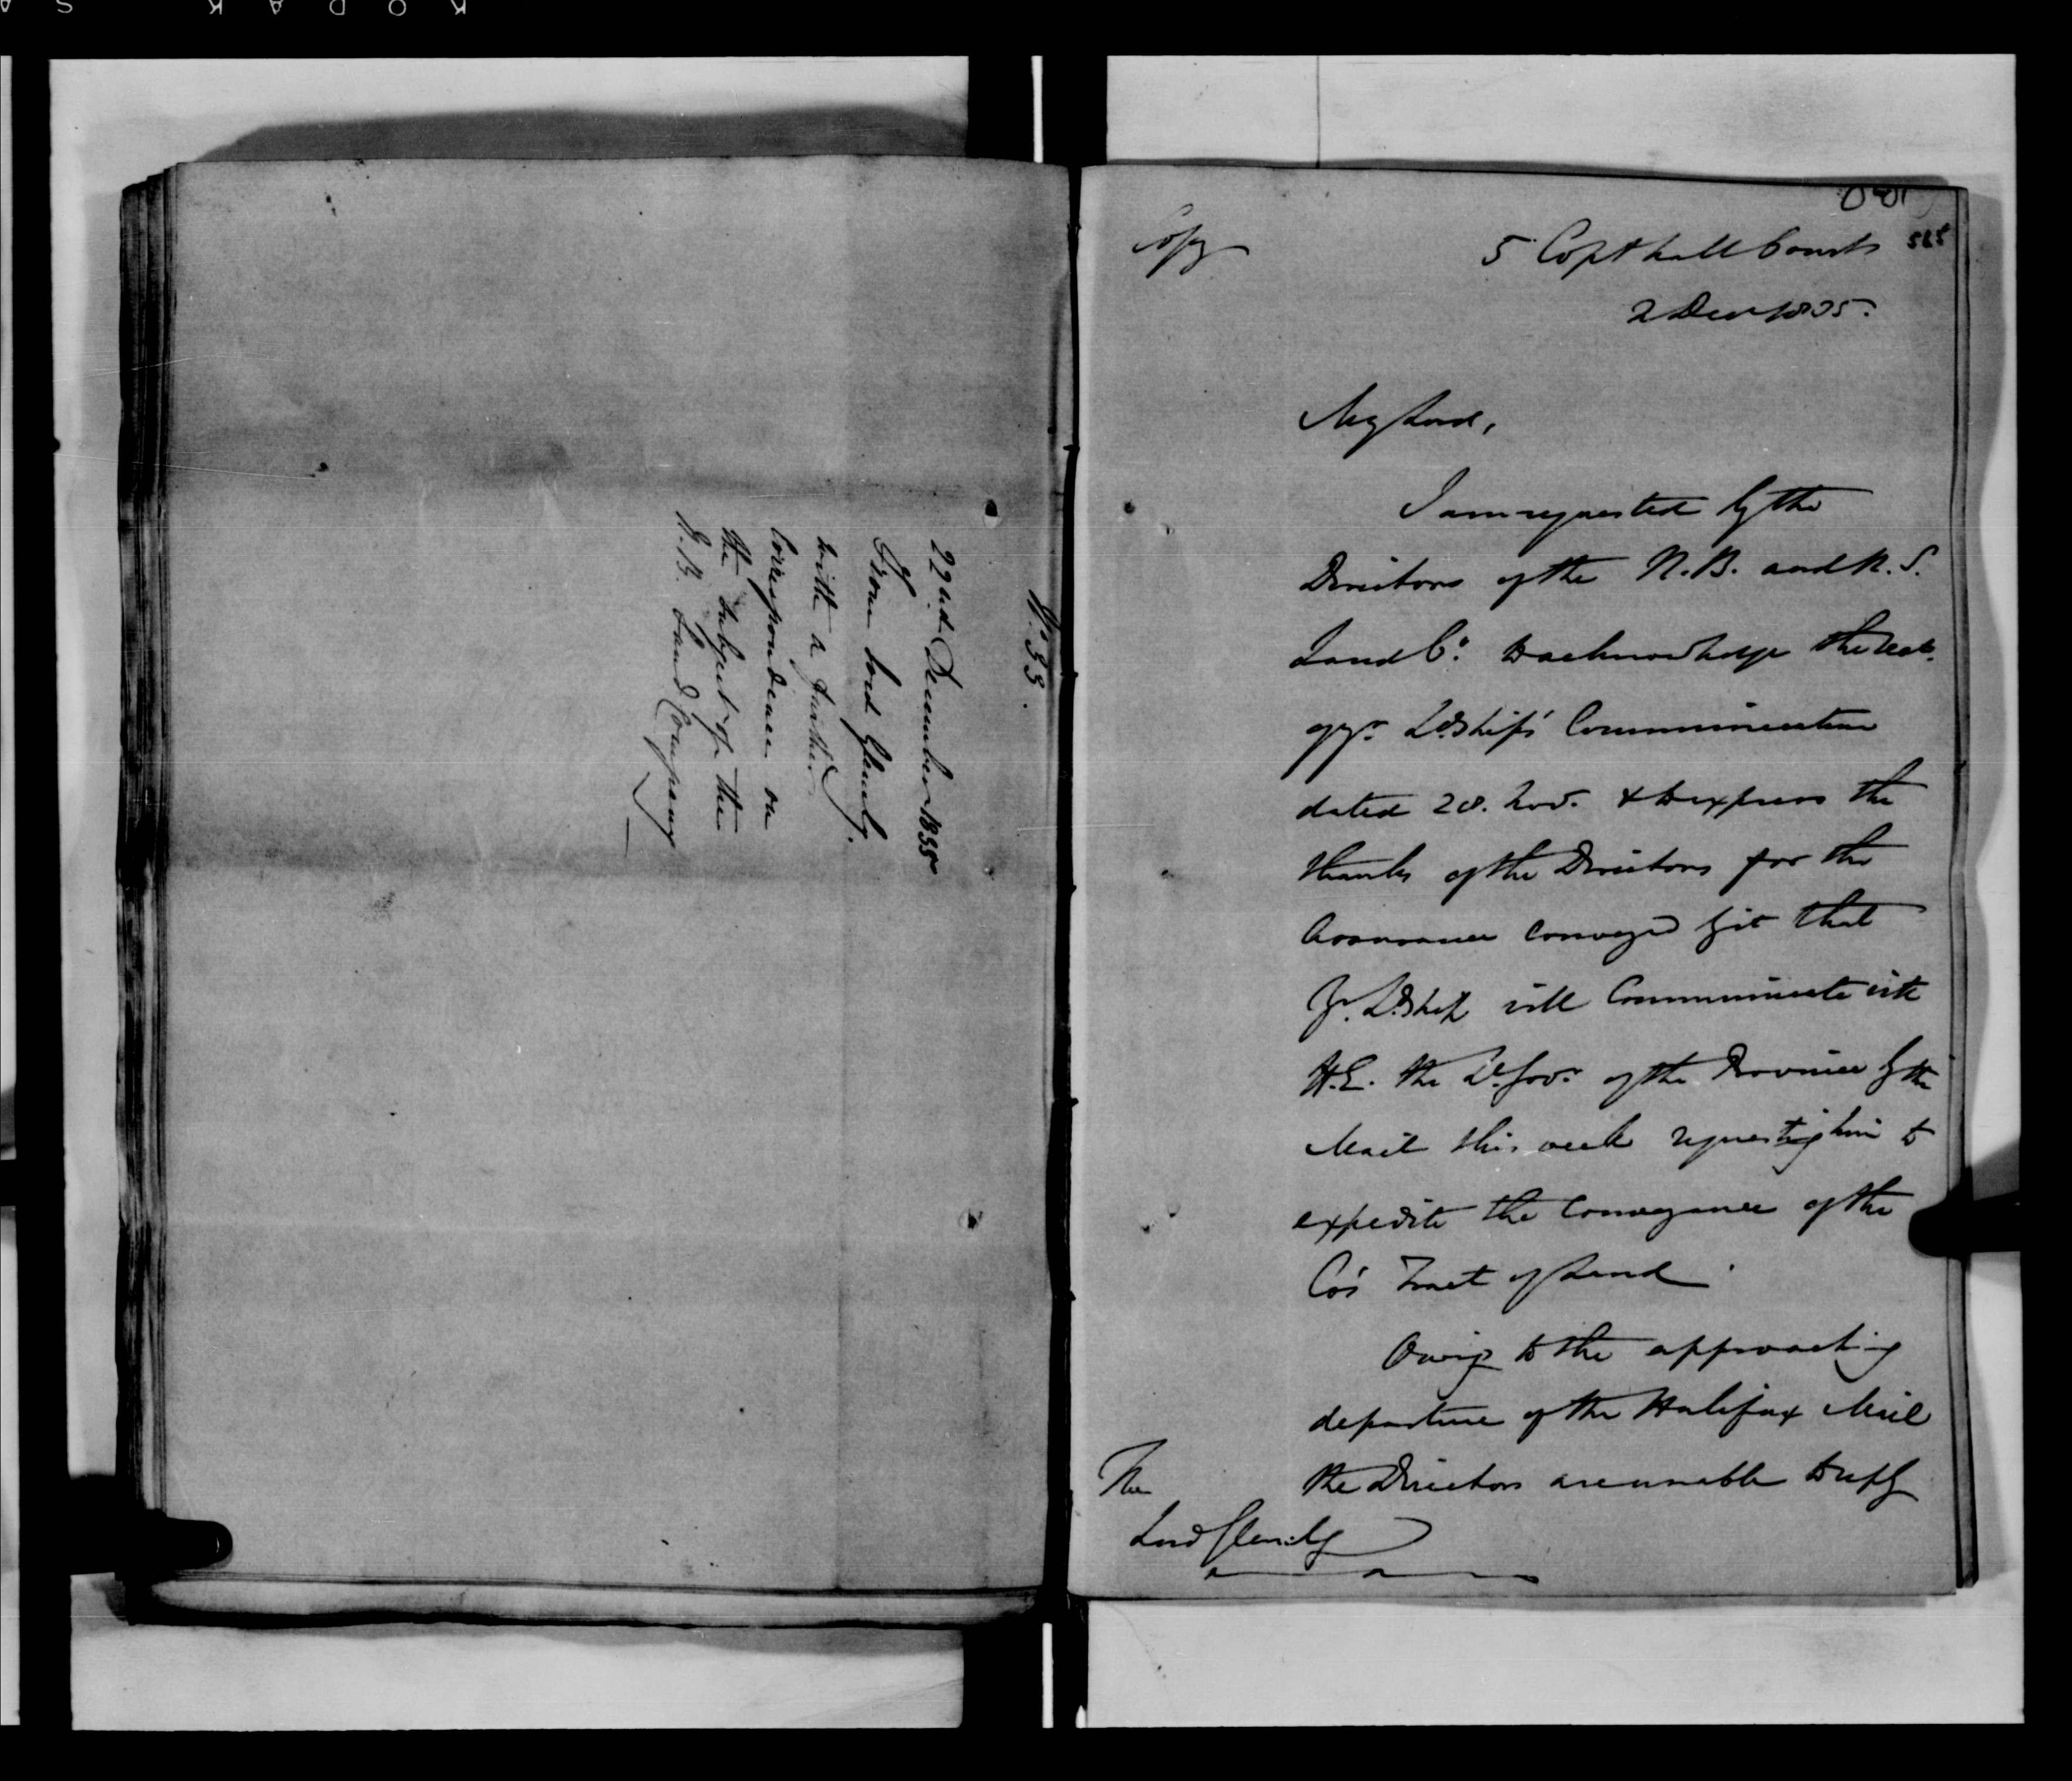 No. 33.
22nd December 1835
From Lord Glenelg.
with a further
Correspondence on
the subject of the
N.B. Land Company
Copy
5 Copthall Court
2 Decr 1835.
My Lord,
I am requested by the
Directors of the N.B. and N.S.
Land Co. to acknowledge the rect.
of yr. Ldship's Communication
dated 28. Nov. & to express the
thanks of the Directors for the
assurance conveyed by it that
Yr. Ldship will Communicate with
H.E. the Lt. Govr. of the Province by the
Mail this week requesting him to
expedite the Conveyance of the
Co's Tract of Land.
Owing to the approaching
departure of the Halifax Mail
the Directors are unable to reply
The
Lord Glenelg